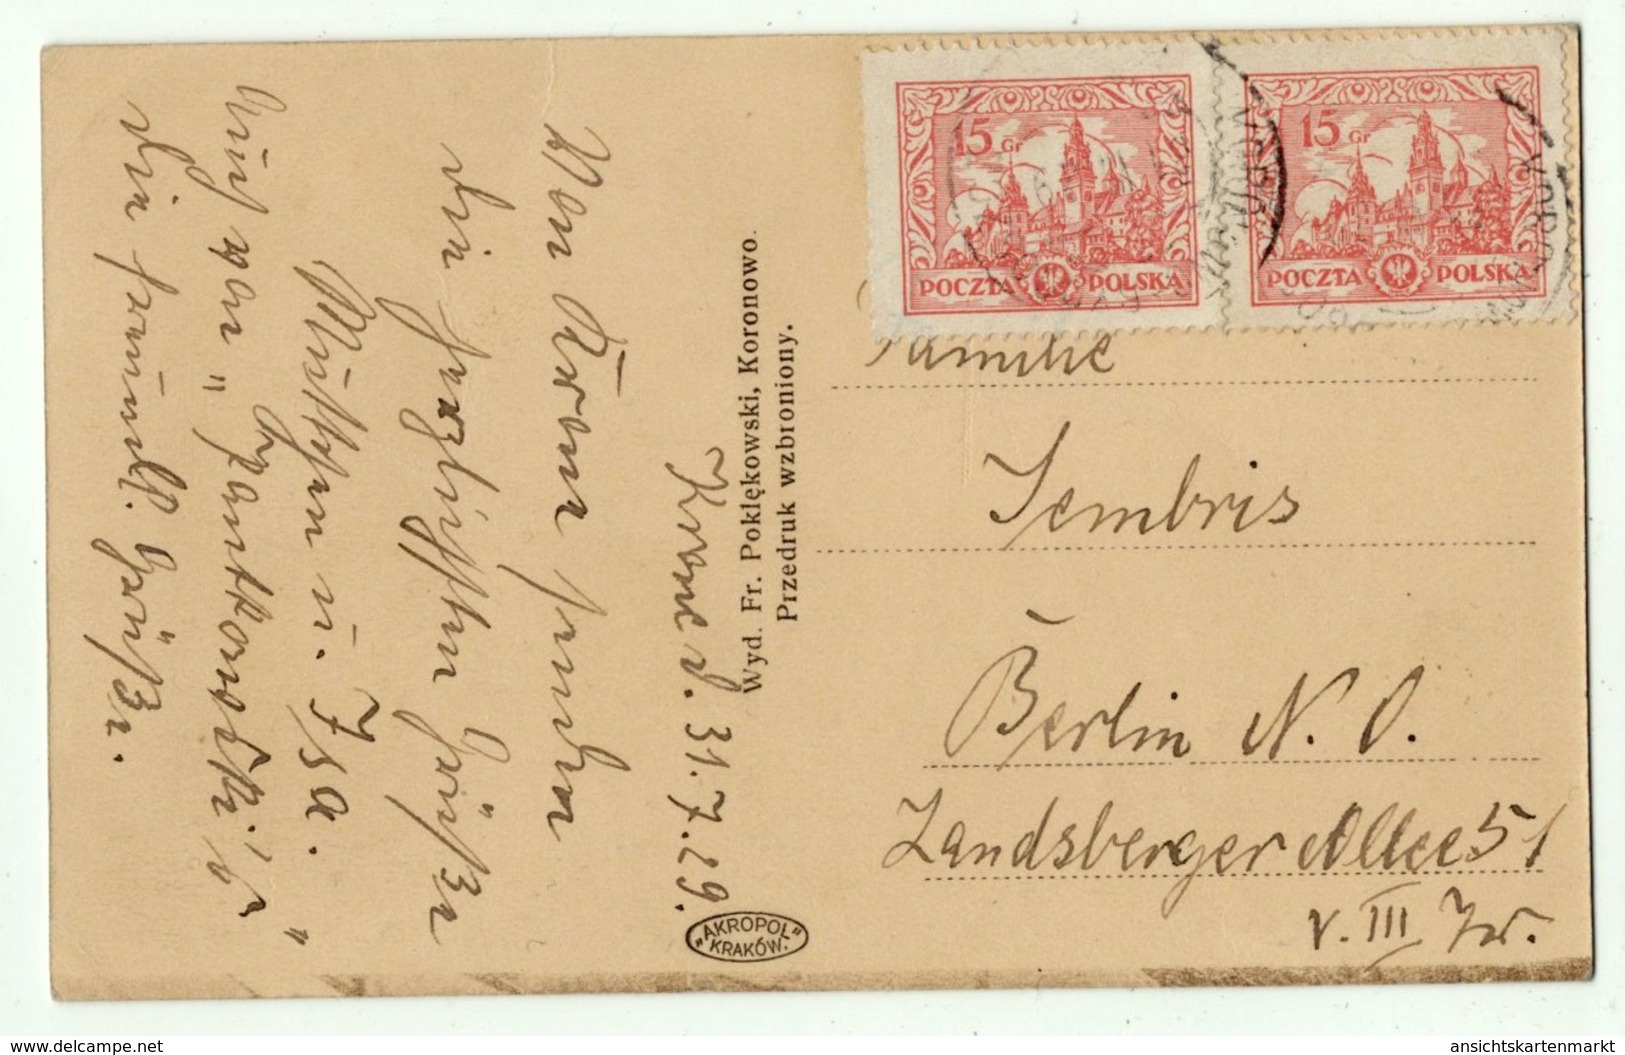 Krone d. 31.7.29.
Von Krone senden
die herzlichsten Grüße
Mütterchen u. Isa.
Auch von
die freundl. Grüße.
Wyd. Fr. Poklękowski, Koronowo.
Przedruk wzbroniony.
"AKROPOL"
KRAKÓW.
15 Gr
POCZTA POLSKA
15 Gr
POCZTA POLSKA
Familie
Sembris
Berlin N.O.
Landsberger Allee 51
v. III
www.delcampe.net
ansichtskartenmarkt